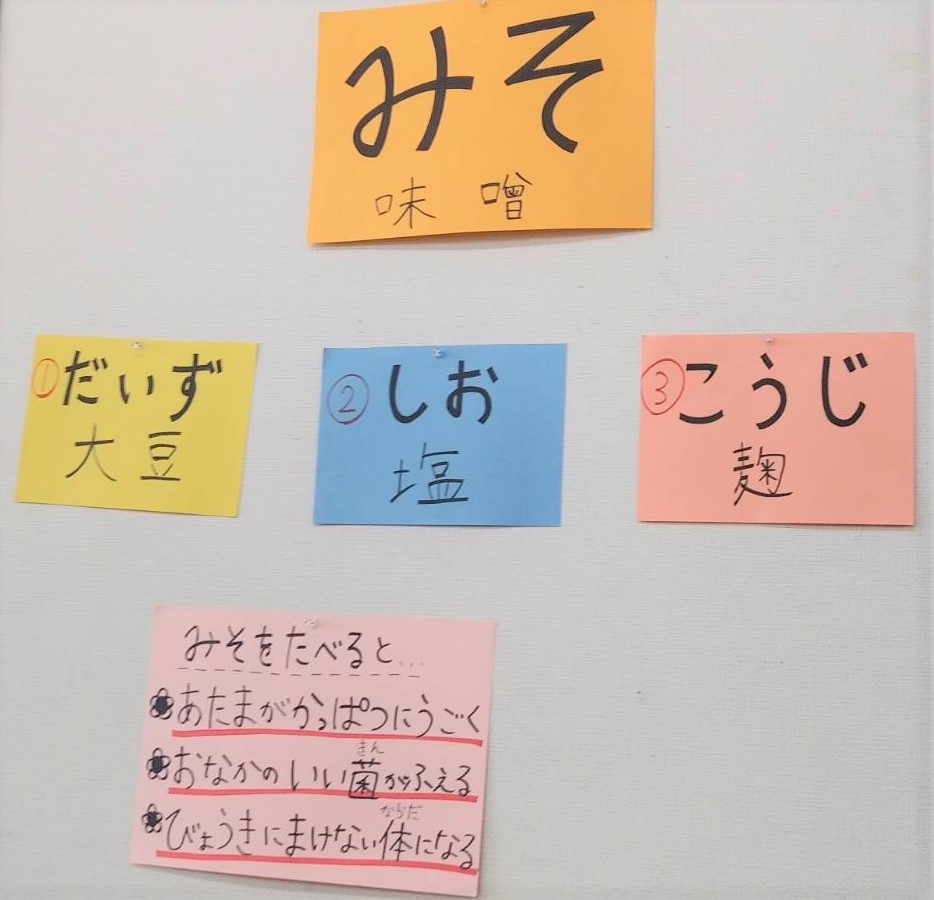 みそ
味噌
①だいず
大豆
②しお
塩
③こうじ
麹
みそをたべると...
あたまがかっぱつにうごく
きん
おなかのいい菌がふえる
からだ
びょうきにまけない体になる